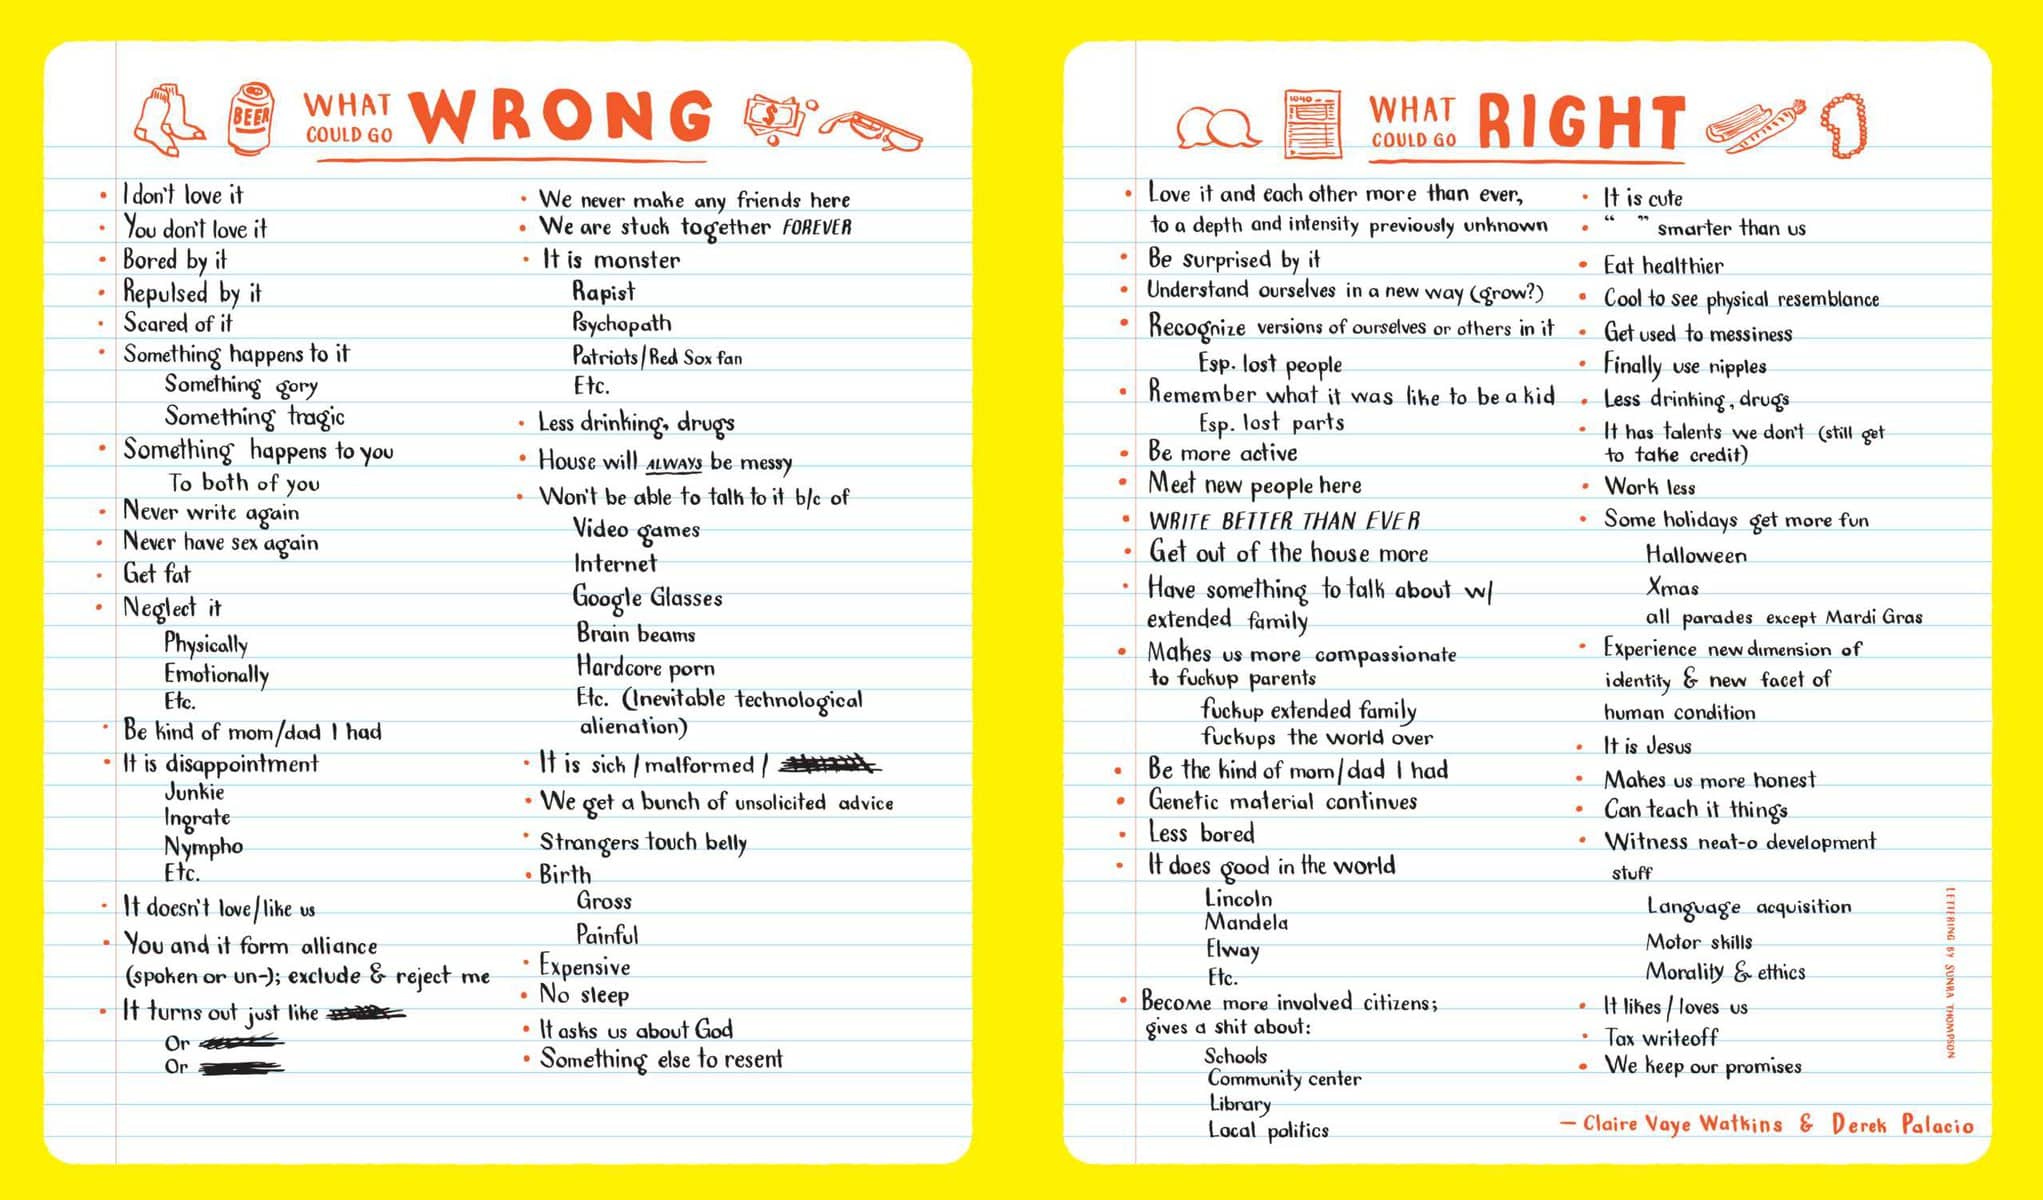 BEER
WHAT
COULD GO
WRONG
$
• I don't love it
• You don't love it
• Bored by it
• Repulsed by it
• Scared of it
• Something happens to it
Something gory
Something tragic
• Something happens to you
To both of you
• Never write again
• Never have sex again
• Get fat
• Neglect it
Physically
Emotionally
Etc.
• Be kind of mom/dad I had
• It is disappointment
Junkie
Ingrate
Nympho
Etc.
• It doesn't love/like us
• You and it form alliance
(spoken or un-); exclude & reject me
• It turns out just like
Or
Or
• We never make any friends here
• We are stuck together FOREVER
• It is monster
Rapist
Psychopath
Patriots/Red Sox fan
Etc.
• Less drinking, drugs
• House will ALWAYS be messy
• Won't be able to talk to it b/c of
Video games
Internet
Google Glasses
Brain beams
Hardcore porn
Etc. (Inevitable technological
alienation)
• It is sick / malformed /
• We get a bunch of unsolicited advice
• Strangers touch belly
• Birth
Gross
Painful
• Expensive
• No sleep
• It asks us about God
• Something else to resent
1040
WHAT
COULD GO
RIGHT
• Love it and each other more than ever,
to a depth and intensity previously unknown
• Be surprised by it
• Understand ourselves in a new way (grow?)
• Recognize versions of ourselves or others in it
Esp. lost people
• Remember what it was like to be a kid
Esp. lost parts
• Be more active
• Meet new people here
• WRITE BETTER THAN EVER
• Get out of the house more
• Have something to talk about w/
extended family
• Makes us more compassionate
to fuckup parents
fuckup extended family
fuckups the world over
• Be the kind of mom/dad I had
• Genetic material continues
• Less bored
• It does good in the world
Lincoln
Mandela
Elway
Etc.
• Become more involved citizens;
gives a shit about:
Schools
Community center
Library
Local politics
• It is cute
• “ ” smarter than us
• Eat healthier
• Cool to see physical resemblance
• Get used to messiness
• Finally use nipples
• Less drinking, drugs
• It has talents we don't (still get
to take credit)
• Work less
• Some holidays get more fun
Halloween
Xmas
all parades except Mardi Gras
• Experience new dimension of
identity & new facet of
human condition
• It is Jesus
• Makes us more honest
• Can teach it things
• Witness neat-o development
stuff
Language acquisition
Motor skills
Morality & ethics
• It likes / loves us
• Tax writeoff
• We keep our promises
LETTERING BY SUNRA THOMPSON
— Claire Vaye Watkins & Derek Palacio